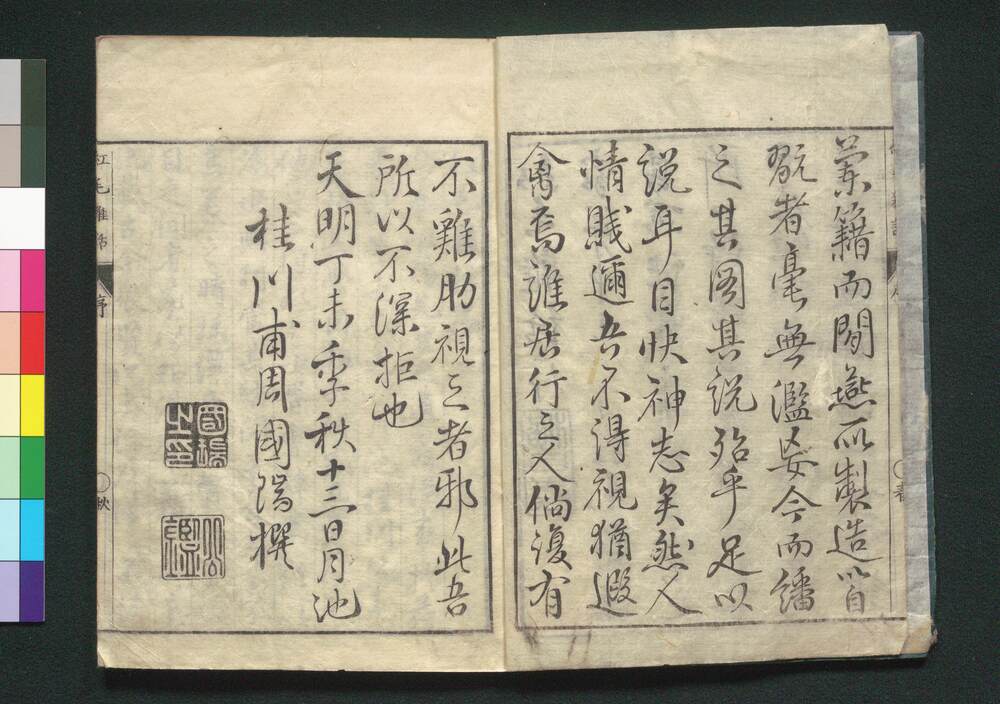 蘭籍而間燕所製造以自
翫者毫無濫妄今而繙
之其図其説殆乎足以
説耳目快神志矣然人
情賤邇吾不得視猶遐
禽焉誰居行之人倘復有
不雞肋視之者邪此吾
所以不深拒也
天明丁未季秋十三日月池
桂川甫周國瑞撰
國瑞之印
紅毛雜話
序
秋